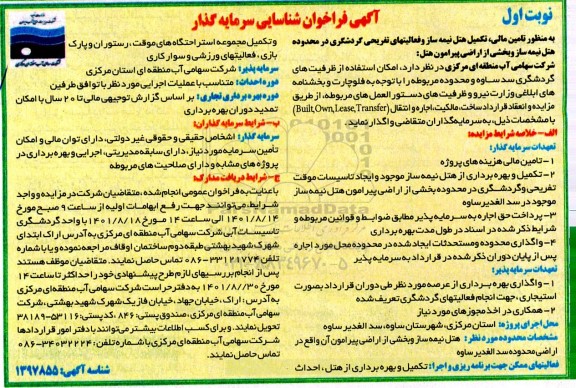 نوبت اول
آگهی فراخوان شناسایی سرمایه گذار
به منظور تامین مالی، تکمیل هتل نیمه ساز و فعالیتهای تفریحی گردشگری در محدوده
هتل نیمه ساز و بخشی از اراضی پیرامون هتل:
شرکت سهامی آب منطقه ای مرکزی در نظر دارد، امکان استفاده از ظرفیت های
گردشگری سد ساوه و محدوده مربوطه را با توجه به فلوچارت و بخشنامه
های ابلاغی وزارت نیرو و ظرفیت های دستورالعمل های مربوطه، از طریق
مزایده و انعقاد قرارداد ساخت، مالکیت، اجاره و انتقال (Built,Own,Lease,Transfer)
با مشخصات ذیل، به سرمایه‌گذاران متقاضی واگذار نماید
الف- خلاصه شرایط مزایده:
تعهدات سرمایه گذار:
۱- تامین مالی هزینه های پروژه
۲- تکمیل و بهره برداری از هتل نیمه ساز موجود و ایجاد تاسیسات موقت
تفریحی و گردشگری در محدوده بخشی از اراضی پیرامون هتل نیمه ساز
موجود در سد الغدیر ساوه
۳- پرداخت حق اجاره به سرمایه پذیر مطابق ضوابط و قوانین مربوطه و
شرایط ذکر شده در اسناد در طول مدت بهره برداری
۴- واگذاری محدوده و مستحدثات ایجاد شده در محدوده محل مورد اجاره
پس از پایان دوران ذکر شده در قرارداد به سرمایه پذیر
تعهدات سرمایه پذیر:
۱- واگذاری بهره برداری از عرصه مورد نظر طی دوران قرارداد بصورت
استیجاری، جهت انجام فعالیتهای گردشگری تعریف شده
۲- همکاری در اخذ مجوزهای مورد نیاز
محل اجرای پروژه: استان مرکزی، شهرستان ساوه، سد الغدیر ساوه
مشخصات محدوده مورد نظر: هتل نیمه ساز و بخشی از اراضی پیرامون آن واقع در
اراضی محدوده سد الغدیر ساوه
فعالیتهای ممکن جهت برنامه ریزی و اجرا: تکمیل و بهره برداری از هتل، احداث
و تکمیل مجموعه استراحتگاه های موقت، رستوران و پارک
بازی، فعالیتهای ورزشی و سوارکاری
سرمایه پذیر: شرکت سهامی آب منطقه ای استان مرکزی
دوره احداث: متناسب با عملیات اجرایی مورد نظر با توافق طرفین
دوره بهره برداری تجاری: بر اساس گزارش توجیهی مالی تا ۲۰ سال با امکان
تمدید دوران بهره برداری
ب- شرایط سرمایه گذاران:
سرمایه گذار: اشخاص حقیقی و حقوقی غیر دولتی، دارای توان مالی و امکان
تأمین سرمایه مورد نیاز، دارای سابقه مدیریتی، اجرایی و بهره برداری در
پروژه های مشابه و دارای صلاحیت های مربوطه
ج- شرایط دریافت مدارک:
با عنایت به فراخوان عمومی انجام شده، متقاضیان شرکت در مزایده و واجد
شرایط، می توانند جهت رفع ابهامات اولیه از ساعت ۹ صبح مورخ
۱۴۰۱/۸/۱۴ الی ساعت ۱۴ مورخ ۱۴۰۱/۸/۱۸ با واحد گردشگری
تاسیسات آبی شرکت سهامی آب منطقه ای مرکزی به آدرس اراک ابتدای
شهرک شهید بهشتی طبقه دوم ساختمان اوقاف مراجعه نموده و یا با شماره
تلفن ۳۳۱۲۱۷۷۴-۰۸۶ تماس حاصل نمایند. متقاضیان موظف هستند
پس از انجام بررسیهای لازم طرح پیشنهادی خود را حداکثر تا ساعت ۱۴
مورخ ۱۴۰۱/۸/۳۰ به دفتر حراست شرکت سهامی آب منطقه ای مرکزی
به آدرس: اراک، خیابان جهاد، خیابان فاز یک شهرک شهید بهشتی، شرکت
سهامی آب منطقه ای مرکزی، صندوق پستی: ۸۴۶، کدپستی: ۵۳۱۱۶-۳۸۱۸۹
تحویل نمایند. و برای کسب اطلاعات بیشتر می توانند با دفتر امور قراردادها
شرکت سهامی آب منطقه ای مرکزی با شماره تلفن: ۳۴۰۳۲۲۲۴-۰۸۶
تماس حاصل نمایند.
شناسه آگهی: ۱۳۹۷۸۵۵